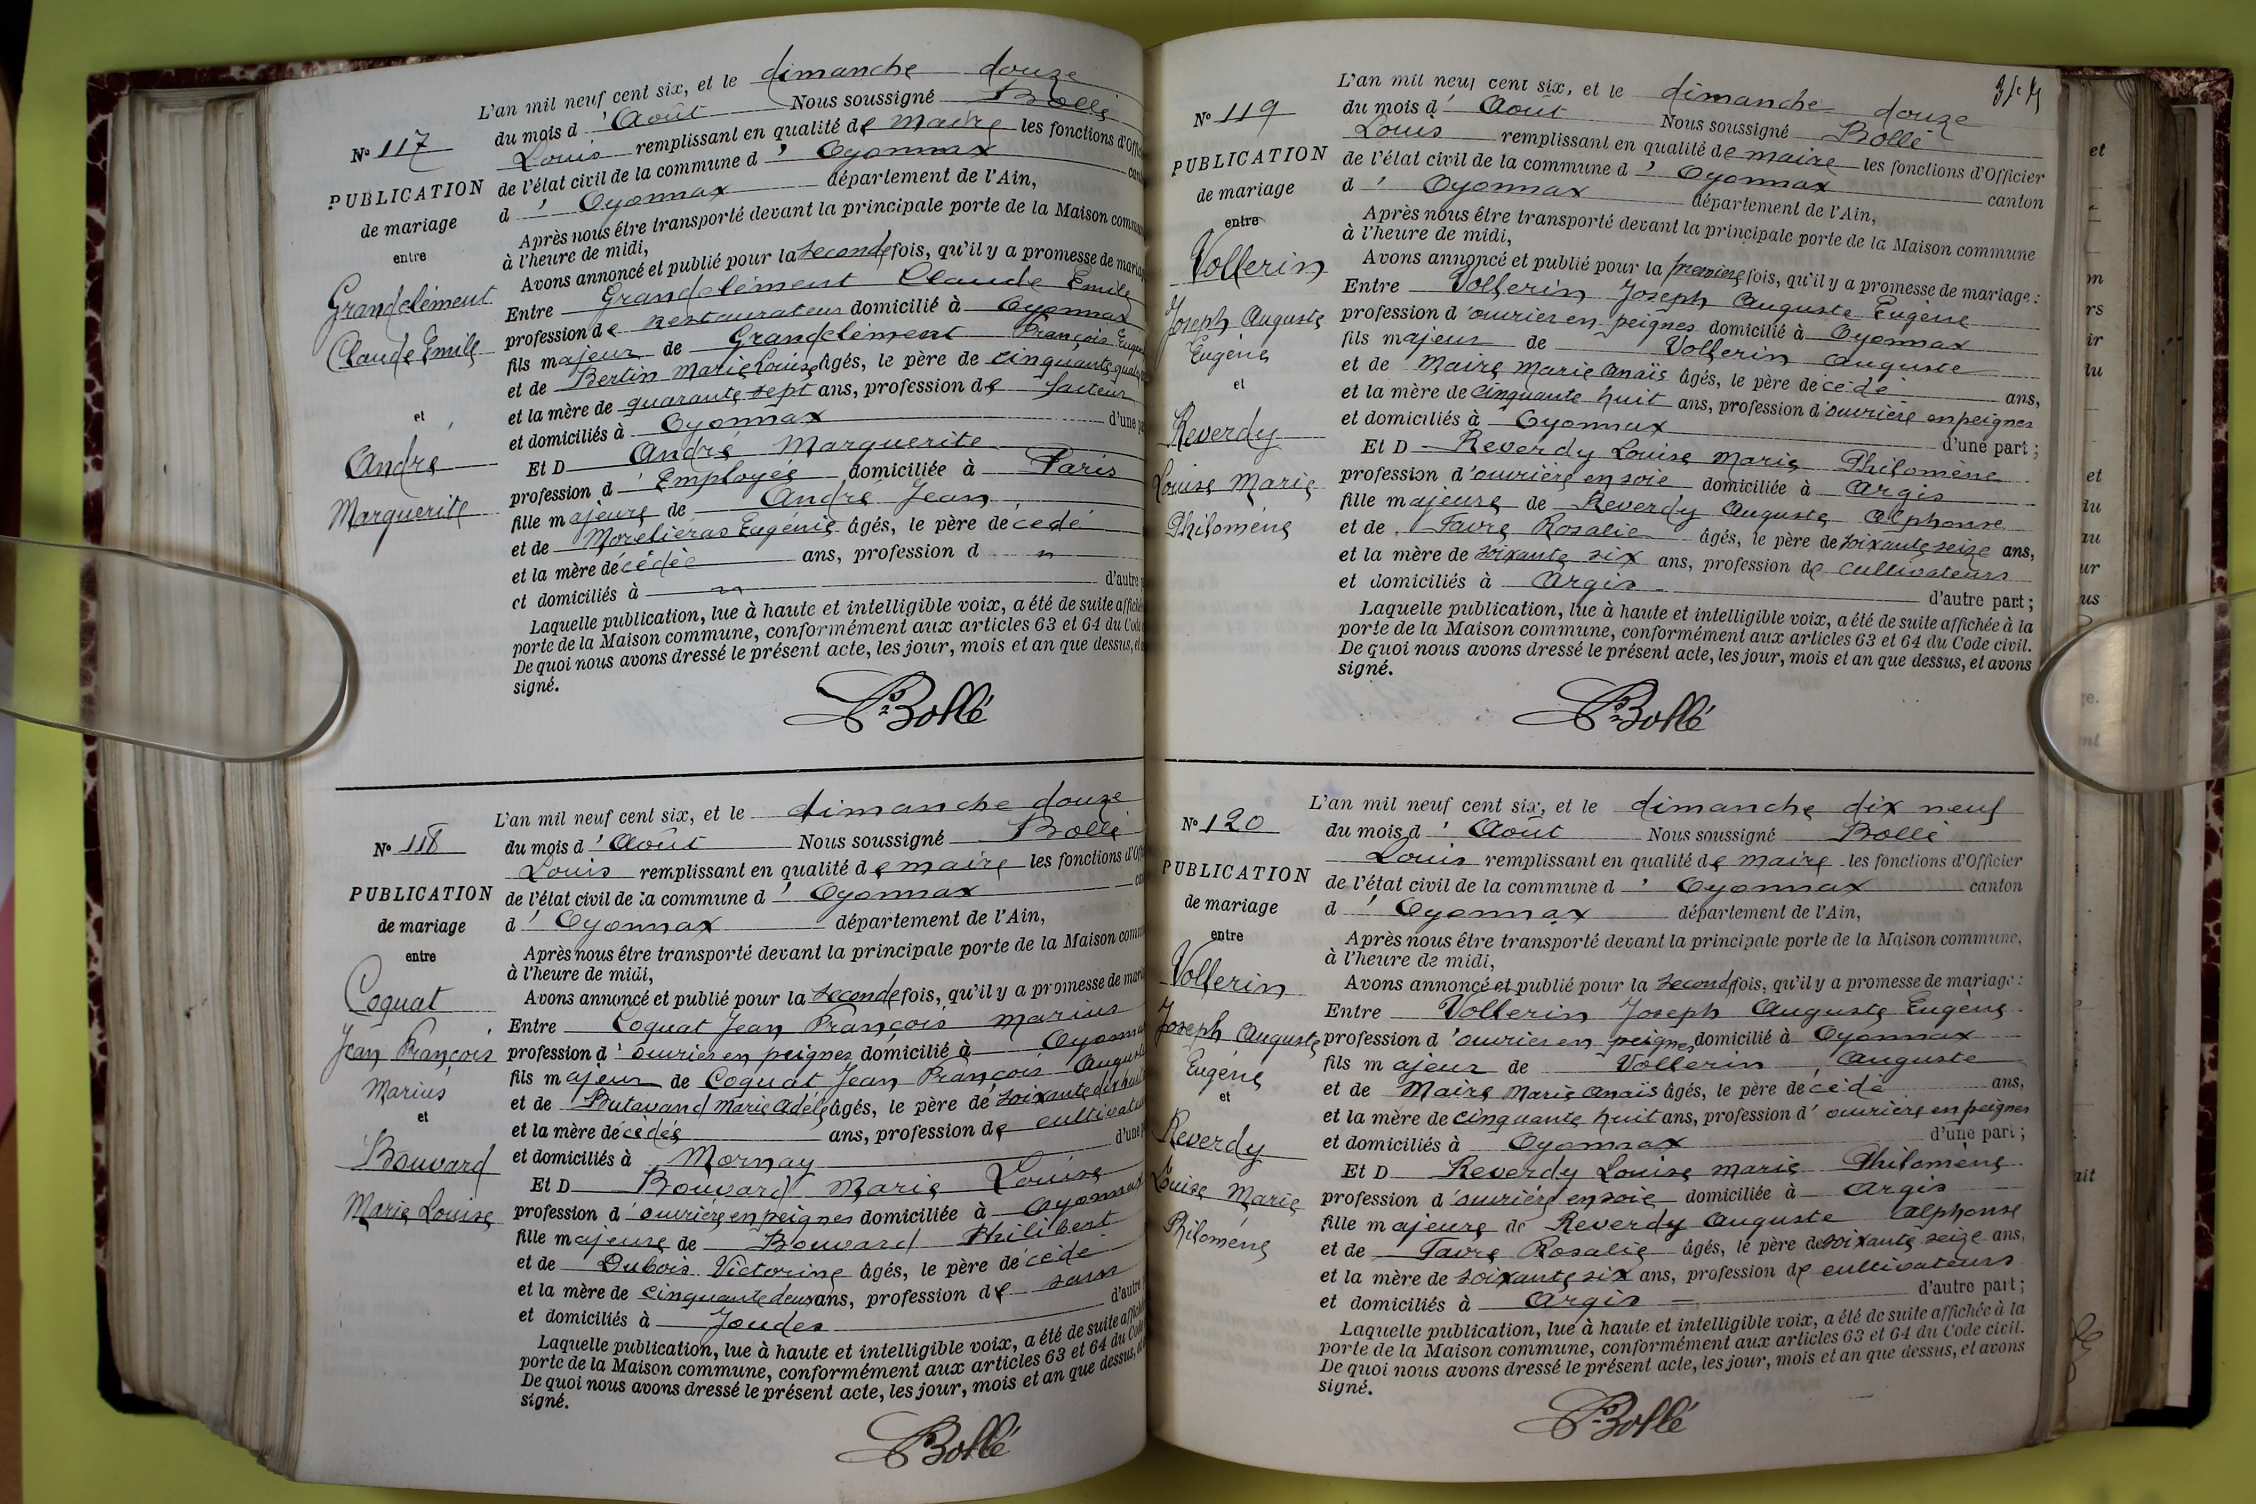 L'an mil neuf cent six, et le dimanche douze
du mois d'Août Nous soussigné Bollé
Louis remplissant en qualité de maire les fonctions d'Offic
de l'état civil de la commune d'Oyonnax can
d'Oyonnax département de l'Ain,
Après nous être transporté devant la principale porte de la Maison commun
à l'heure de midi,
Avons annoncé et publié pour la seconde fois, qu'il y a promesse de maria
Entre Grandclément Claude Emile
profession de restaurateur domicilié à Oyonnax
fils majeur de Grandclément François Eugè
et de Bertin Marie Louise âgés, le père de cinquante quat
et la mère de quarante sept ans, profession de facteur
et domiciliés à Oyonnax d'une pa
Et D André Marguerite
profession d'Employée domiciliée à Paris
fille majeure de André Jean
et de Morelièras Eugénie âgés, le père décédé
et la mère décédée ans, profession d
et domiciliés à d'autre
Laquelle publication, lue à haute et intelligible voix, a été de suite affiché
porte de la Maison commune, conformément aux articles 63 et 64 du Code
De quoi nous avons dressé le présent acte, les jour, mois et an que dessus, et
signé.
Bollé
No 117
PUBLICATION
de mariage
entre
Grandclément
Claude Emile
et
André
Marguerite
L'an mil neuf cent six, et le dimanche douze
du mois d'Août Nous soussigné Bollé
Louis remplissant en qualité de maire les fonctions d'Off
de l'état civil de la commune d'Oyonnax ca
d'Oyonnax département de l'Ain,
Après nous être transporté devant la principale porte de la Maison comm
à l'heure de midi,
Avons annoncé et publié pour la seconde fois, qu'il y a promesse de mar
Entre Coquat Jean François Marius
profession d'ouvrier en peignes domicilié à Oyonna
fils majeur de Coquat Jean François Auguste
et de Butavand Marie Adèle âgés, le père de soixante dix huit
et la mère décédée ans, profession de cultivateu
et domiciliés à Mornay d'une p
Et D Bouvard Marie Louise
profession d'ouvrière en peignes domiciliée à Oyonnax
fille majeure de Bouvard Philibert
et de Dubois Victorine âgés, le père décédé
et la mère de cinquante deux ans, profession de sans
et domiciliés à Joudes d'autre
Laquelle publication, lue à haute et intelligible voix, a été de suite affich
porte de la Maison commune, conformément aux articles 63 et 64 du Code
De quoi nous avons dressé le présent acte, les jour, mois et an que dessus,
signé.
Bollé
No 118
PUBLICATION
de mariage
entre
Coquat
Jean François
Marius
et
Bouvard
Marie Louise
L'an mil neuf cent six, et le dimanche douze
du mois d'Août Nous soussigné Bollé
Louis remplissant en qualité de maire les fonctions d'Officier
de l'état civil de la commune d'Oyonnax canton
d'Oyonnax département de l'Ain,
Après nous être transporté devant la principale porte de la Maison commune
à l'heure de midi,
Avons annoncé et publié pour la première fois, qu'il y a promesse de mariage :
Entre Vollerin Joseph Auguste Eugène
profession d'ouvrier en peignes domicilié à Oyonnax
fils majeur de Vollerin Auguste
et de Maire Marie Anaïs âgés, le père décédé ans,
et la mère de cinquante huit ans, profession d'ouvrière en peignes
et domiciliés à Oyonnax d'une part ;
Et D Reverdy Louise Marie Philomène
profession d'ouvrière en soie domiciliée à Argis
fille majeure de Reverdy Auguste Alphonse
et de Favre Rosalie âgés, le père de soixante seize ans,
et la mère de soixante six ans, profession de cultivateurs
et domiciliés à Argis d'autre part ;
Laquelle publication, lue à haute et intelligible voix, a été de suite affichée à la
porte de la Maison commune, conformément aux articles 63 et 64 du Code civil.
De quoi nous avons dressé le présent acte, les jour, mois et an que dessus, et avons
signé.
Bollé
No 119
PUBLICATION
de mariage
entre
Vollerin
Joseph Auguste
Eugène
et
Reverdy
Louise Marie
Philomène
L'an mil neuf cent six, et le dimanche dix neuf
du mois d'Août Nous soussigné Bollé
Louis remplissant en qualité de maire les fonctions d'Officier
de l'état civil de la commune d'Oyonnax canton
d'Oyonnax département de l'Ain,
Après nous être transporté devant la principale porte de la Maison commune,
à l'heure de midi,
Avons annoncé et publié pour la seconde fois, qu'il y a promesse de mariage :
Entre Vollerin Joseph Auguste Eugène
profession d'ouvrier en peignes domicilié à Oyonnax
fils majeur de Vollerin Auguste
et de Maire Marie Anaïs âgés, le père décédé ans,
et la mère de cinquante huit ans, profession d'ouvrière en peignes
et domiciliés à Oyonnax d'une part ;
Et D Reverdy Louise Marie Philomène
profession d'ouvrière en soie domiciliée à Argis
fille majeure de Reverdy Auguste Alphonse
et de Favre Rosalie âgés, le père de soixante seize ans,
et la mère de soixante six ans, profession de cultivateurs
et domiciliés à Argis d'autre part ;
Laquelle publication, lue à haute et intelligible voix, a été de suite affichée à la
porte de la Maison commune, conformément aux articles 63 et 64 du Code civil.
De quoi nous avons dressé le présent acte, les jour, mois et an que dessus, et avons
signé.
Bollé
No 120
PUBLICATION
de mariage
entre
Vollerin
Joseph Auguste
Eugène
et
Reverdy
Louise Marie
Philomène